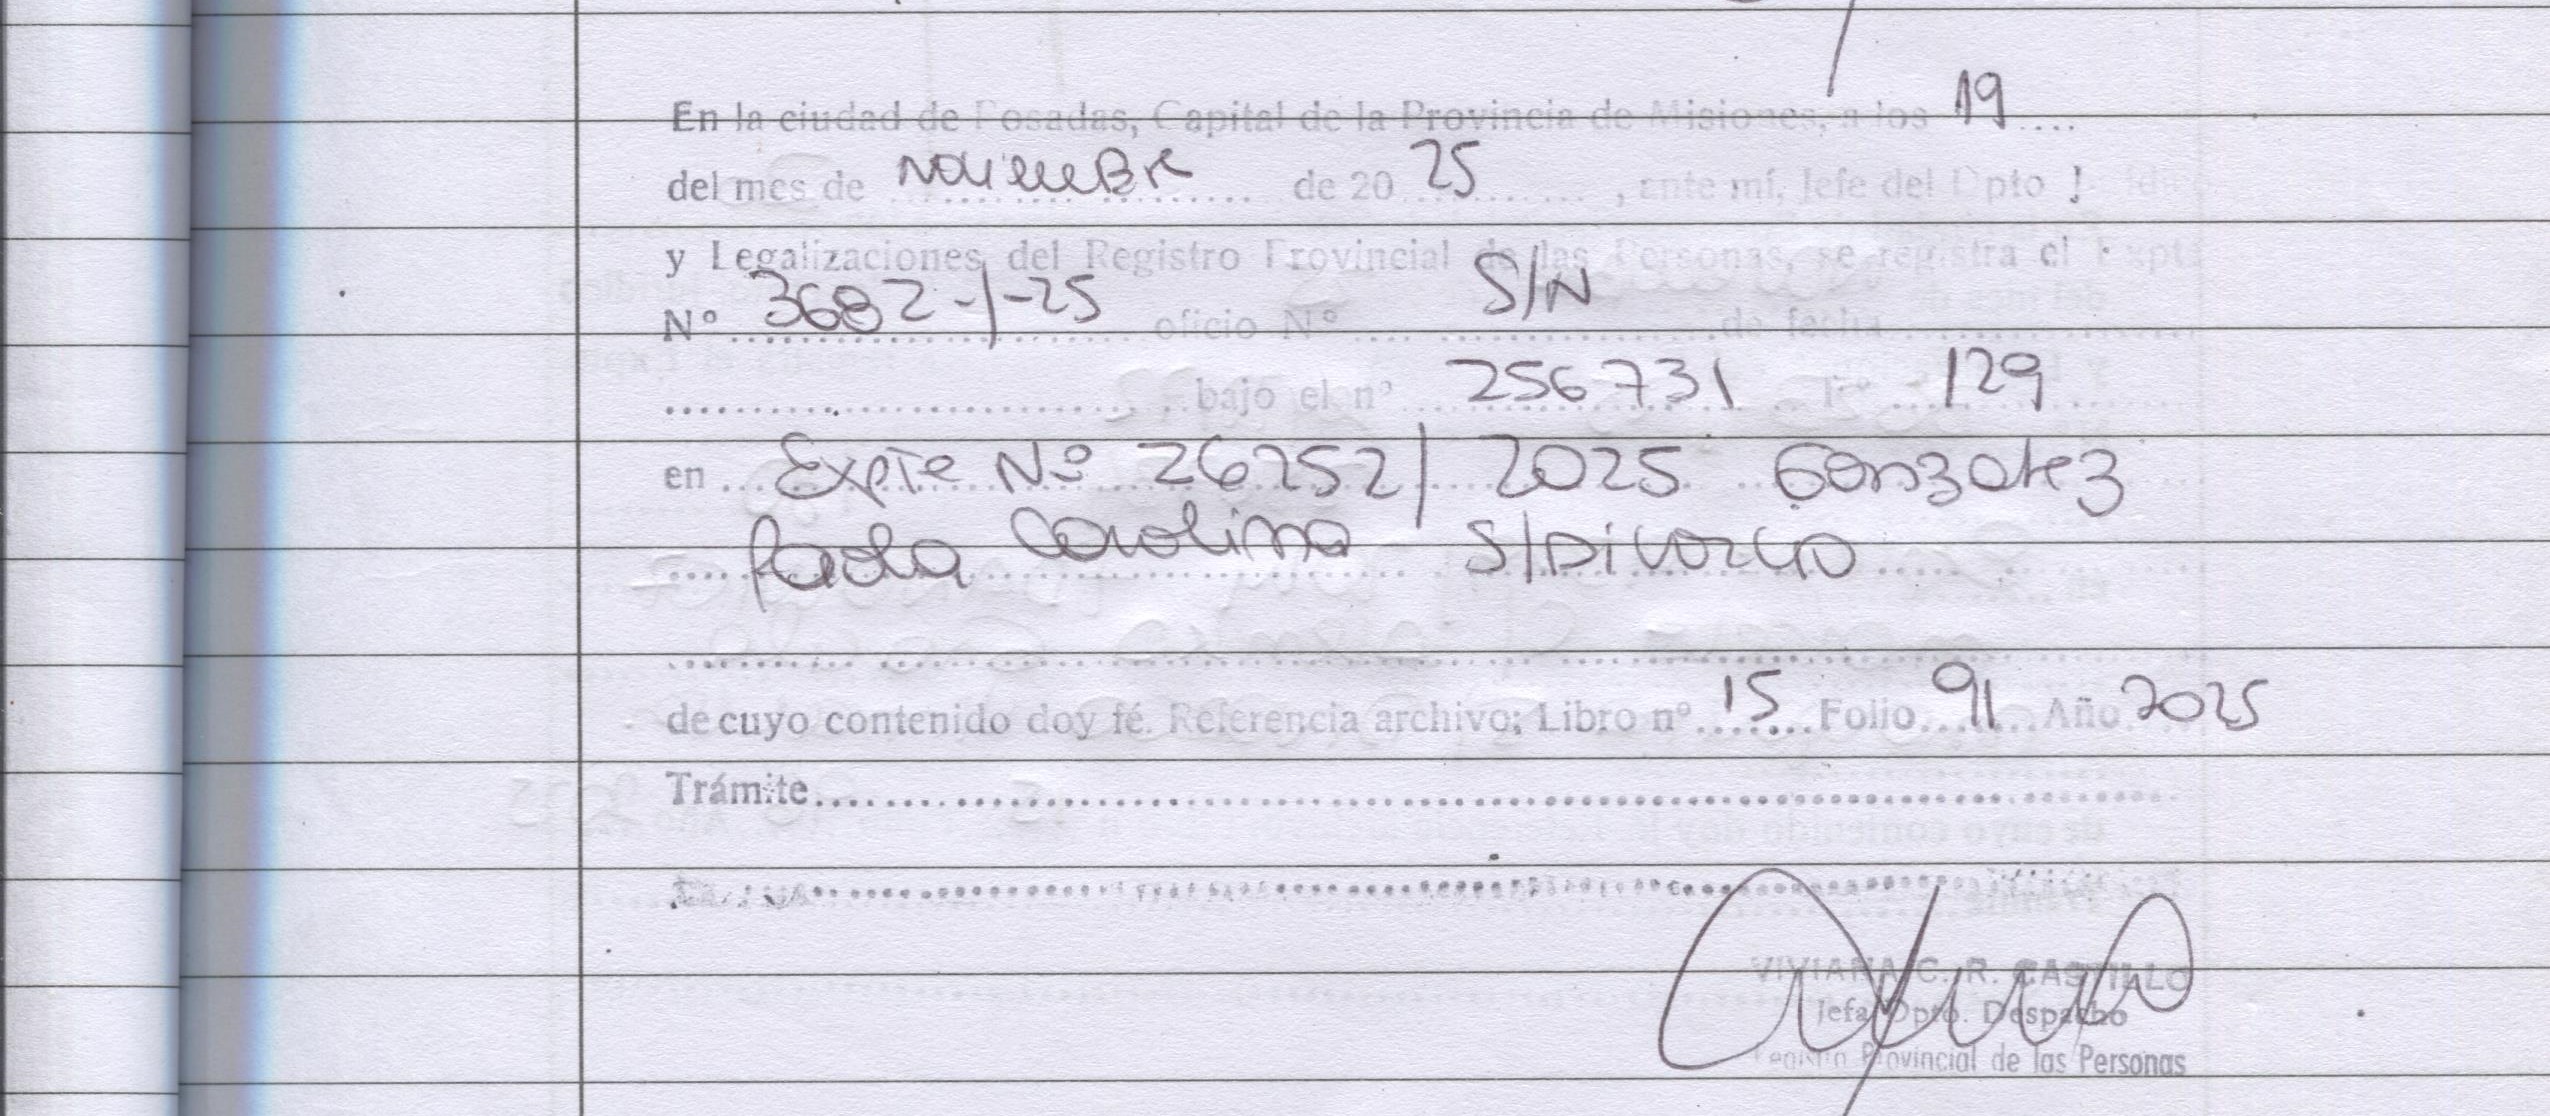 En la ciudad de Posadas, Capital de la Provincia de Misiones, a los 19 ....
del mes de Noviembre de 20 25 , ante mí, Jefe del Dpto
y Legalizaciones del Registro Provincial de las Personas, se registra el Expte
Nº 3682-/-25 oficio Nº S/N de fecha
bajo el nº 256731 Fº 129
en Expte Nº 26252/2025 Gonzalez
Paola Carolina S/Divorcio
de cuyo contenido doy fé. Referencia archivo; Libro nº 15 Folio 91 Año 2025
Trámite
VIVIANA C. R. CASTILLO
Jefa Dpto. Despacho
Registro Provincial de las Personas